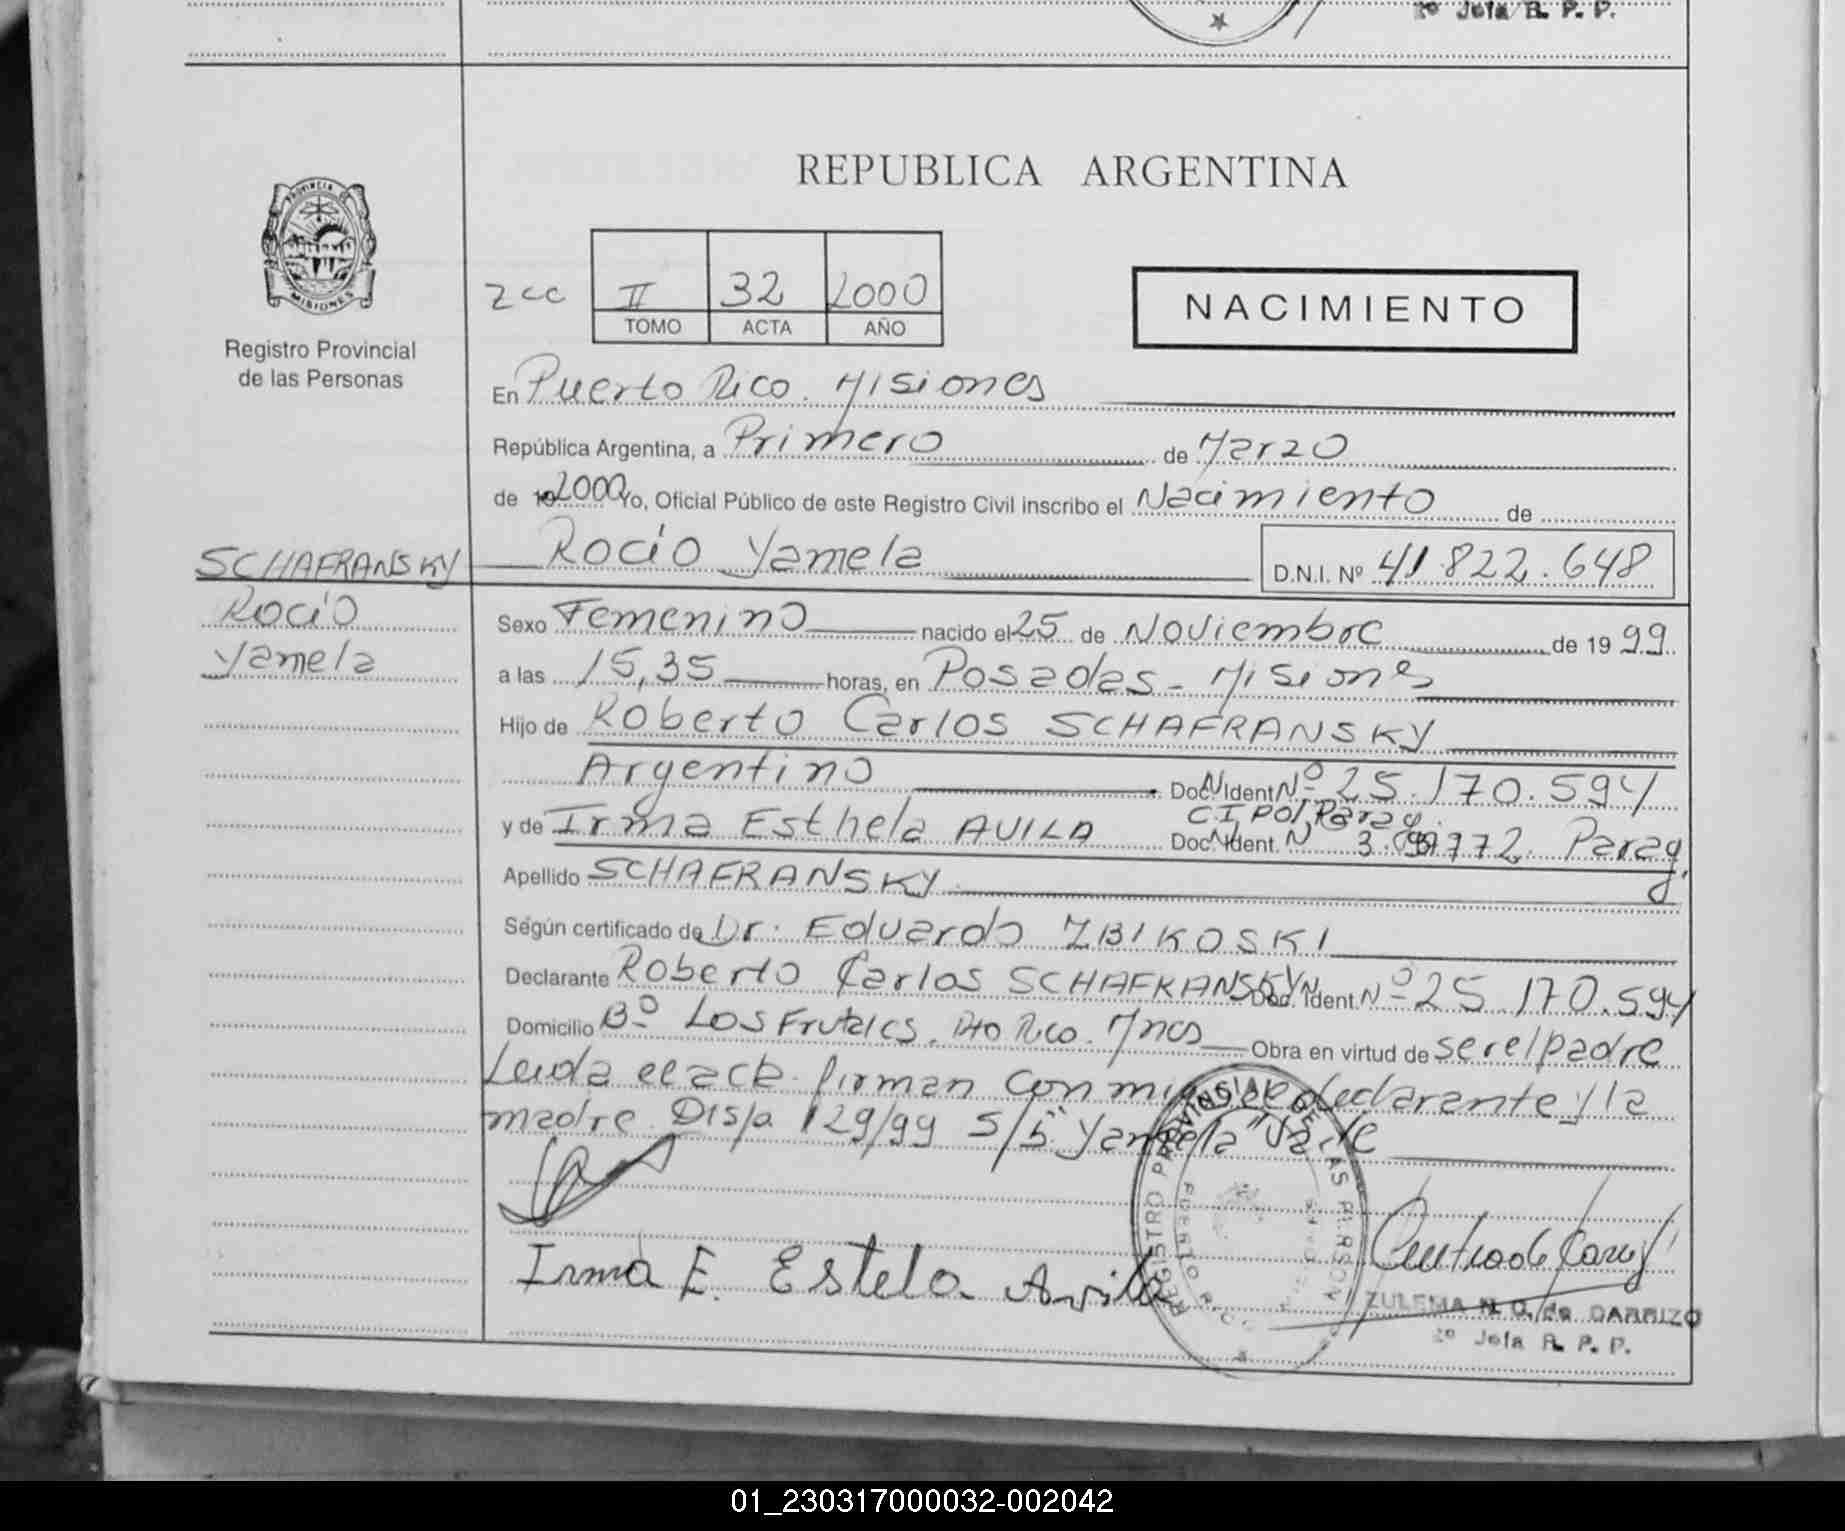 2º Jefa R. P. P.
REPUBLICA ARGENTINA
PROVINCIA
MISIONES
Registro Provincial
de las Personas
2cc II 32 2000
TOMO ACTA AÑO
NACIMIENTO
En Puerto Rico. Misiones
República Argentina, a Primero de Marzo
de 19 2000 Yo, Oficial Público de este Registro Civil inscribo el Nacimiento de
Rocío Yamela D.N.I. Nº 41.822.648
SCHAFRANSKY
Rocío
Yamela
Sexo Femenino nacido el 25 de Noviembre de 19 99
a las 15,35 horas, en Posadas - Misiones
Hijo de Roberto Carlos SCHAFRANSKY
Argentino Doc. N. Ident. Nº 25.170.594
C.I. Pol. Parag.
y de Irma Esthela AVILA Doc. N. Ident. N 3. 772. Parag.
Apellido SCHAFRANSKY
Según certificado de Dr. Eduardo ZBIKOSKI
Declarante Roberto Carlos SCHAFRANSKY Doc. N. Ident. Nº 25.170.594
Domicilio Bº Los Frutales. Pto Rico. Mnes Obra en virtud de ser el padre
Leida el acta firman con migo el declarante y la
madre. Disp. 129/99 S/b "Yamela" Vale
REGISTRO PROVINCIAL DE LAS PERSONAS
PUERTO RICO
Irma E. Estela Avila
ZULEMA N. O. de CARRIZO
2º Jefa R. P. P.
01_230317000032-002042